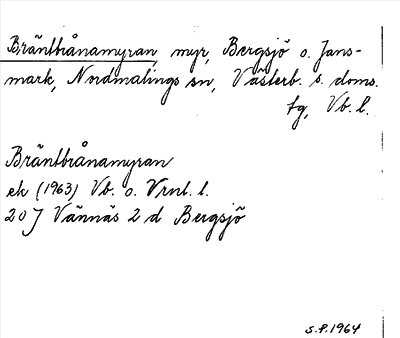 Bräntbrånamyran, myr, Bergsjö o. Jans-
mark, Nordmalings sn, Västerb. s. doms.
tg, Vb. l.
Bräntbrånamyran
ek (1963) Vb. o. Vrnl. l.
20 J Vännäs 2 d Bergsjö
S.P. 1964